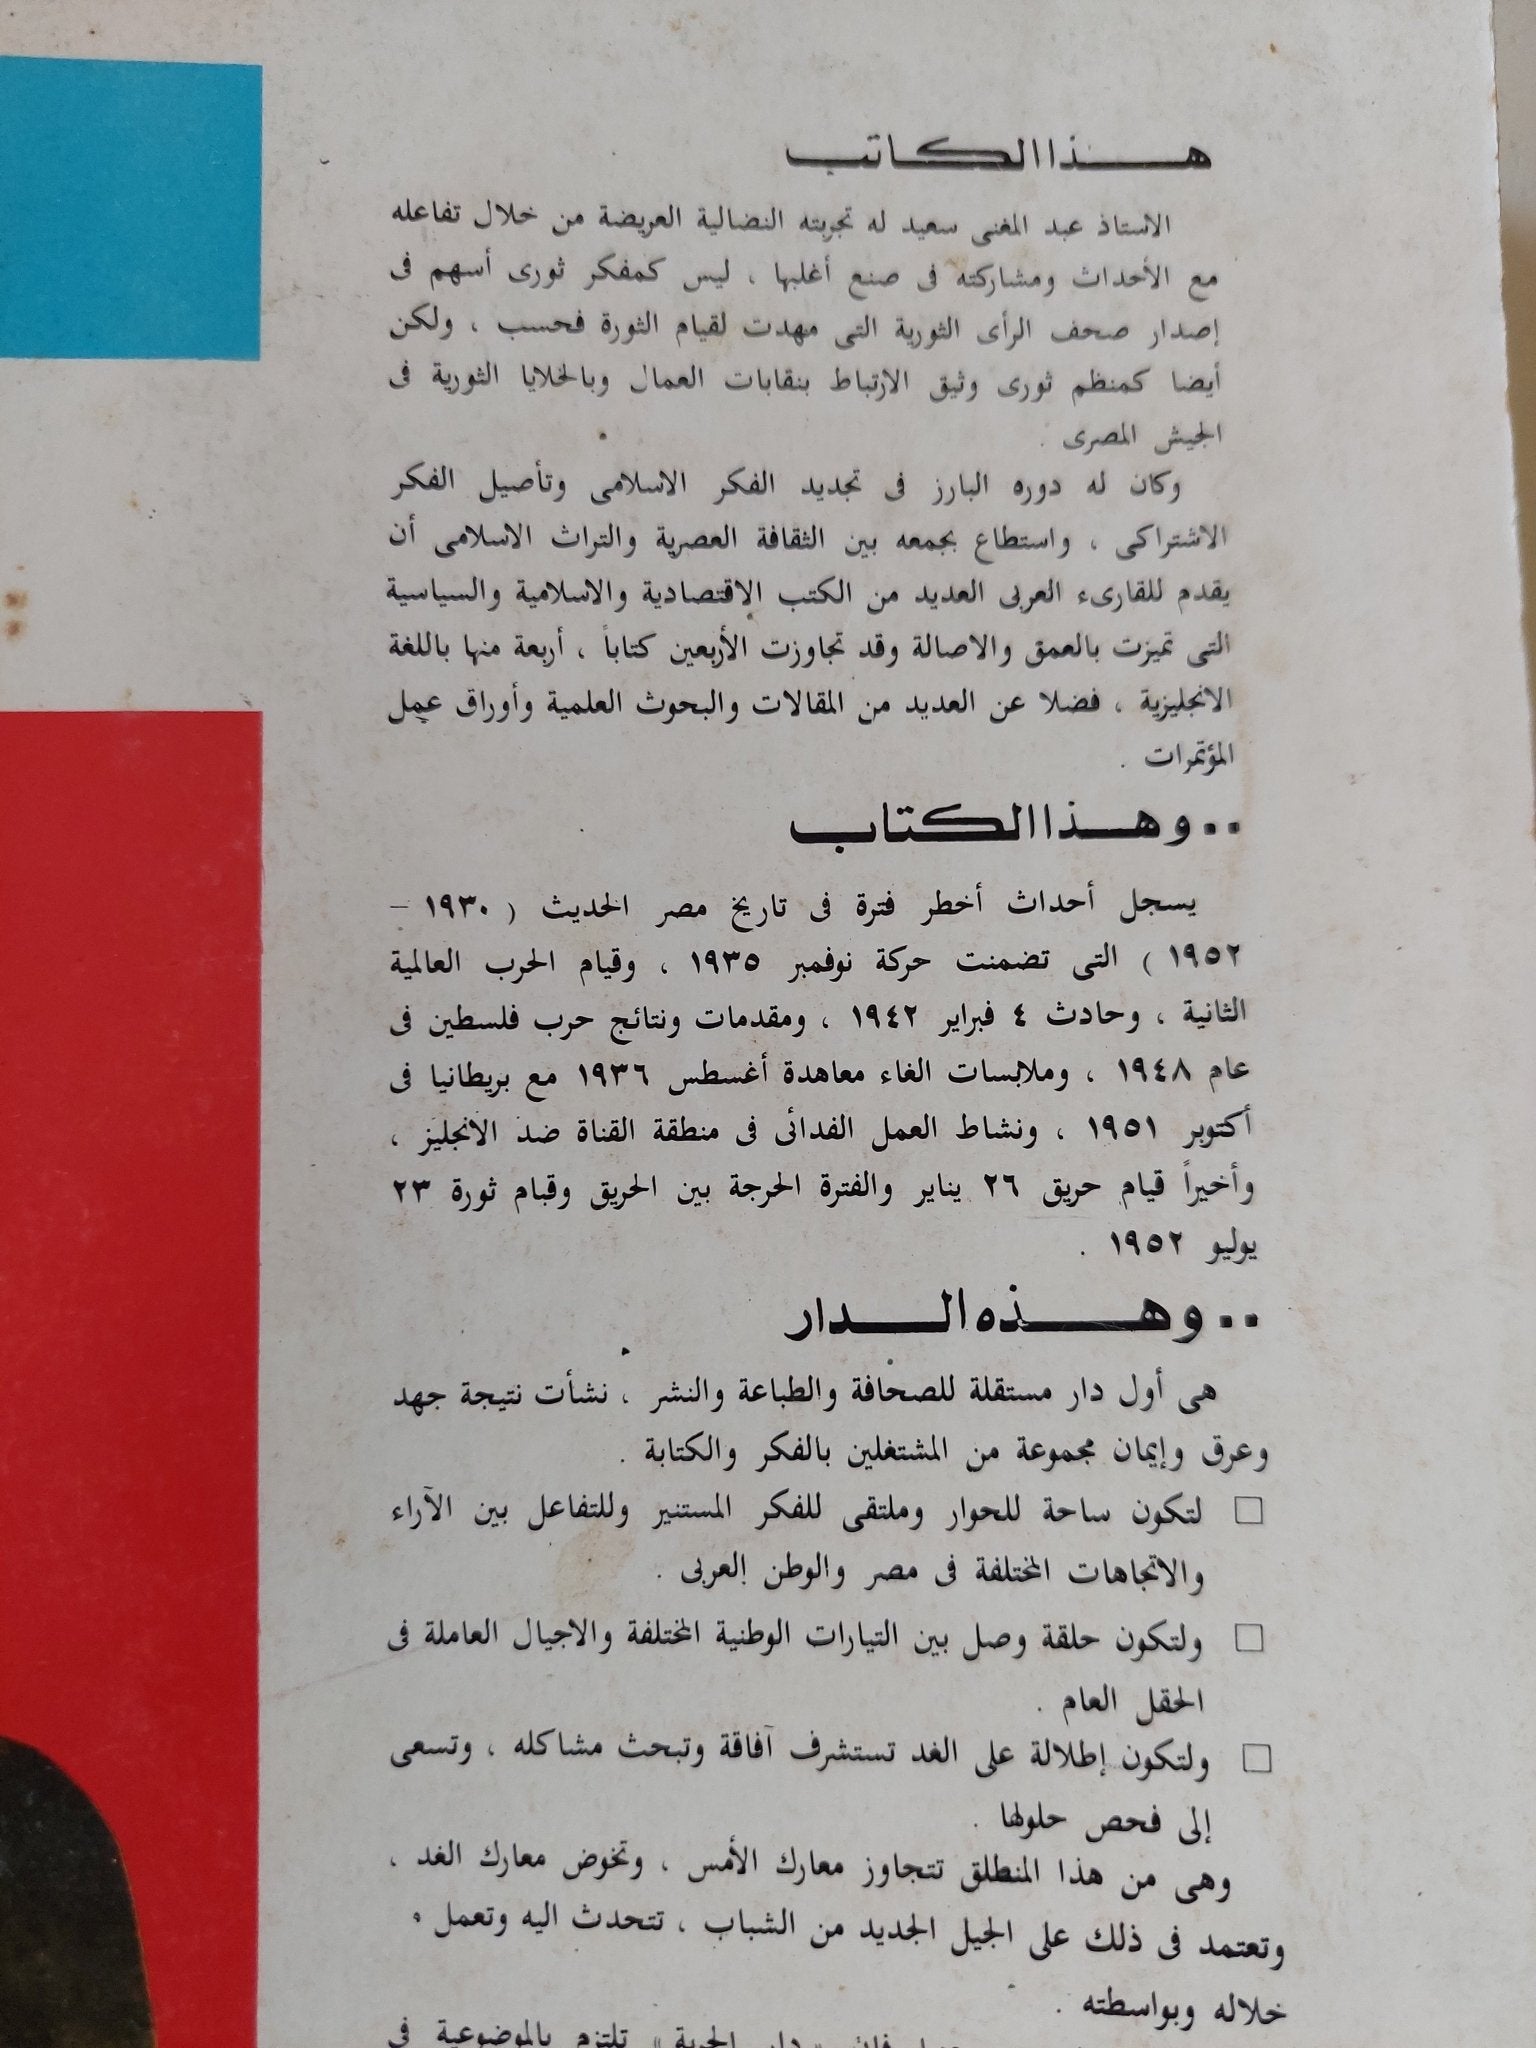 هذا الكاتب
الاستاذ عبد المغنى سعيد له تجربته النضالية العريضة من خلال تفاعله
مع الأحداث ومشاركته فى صنع أغلبها ، ليس كمفكر ثورى أسهم فى
إصدار صحف الرأى الثورية التى مهدت لقيام الثورة فحسب ، ولكن
أيضا كمنظم ثورى وثيق الارتباط بنقابات العمال وبالخلايا الثورية فى
الجيش المصرى .
وكان له دوره البارز فى تجديد الفكر الاسلامى وتأصيل الفكر
الاشتراكى ، واستطاع بجمعه بين الثقافة العصرية والتراث الاسلامى أن
يقدم للقارىء العربى العديد من الكتب الاقتصادية والاسلامية والسياسية
التى تميزت بالعمق والاصالة وقد تجاوزت الأربعين كتاباً ، أربعة منها باللغة
الانجليزية ، فضلا عن العديد من المقالات والبحوث العلمية وأوراق عمل
المؤتمرات .
.. وهذا الكتاب
يسجل أحداث أخطر فترة فى تاريخ مصر الحديث ( ١٩٣٠ –
١٩٥٢ ) التى تضمنت حركة نوفمبر ١٩٣٥ ، وقيام الحرب العالمية
الثانية ، وحادث ٤ فبراير ١٩٤٢ ، ومقدمات ونتائج حرب فلسطين فى
عام ١٩٤٨ ، وملابسات الغاء معاهدة أغسطس ١٩٣٦ مع بريطانيا فى
أكتوبر ١٩٥١ ، ونشاط العمل الفدائى فى منطقة القناة ضد الانجليز ،
وأخيراً قيام حريق ٢٦ يناير والفترة الحرجة بين الحريق وقيام ثورة ٢٣
يوليو ١٩٥٢ .
.. وهذه الدار
هى أول دار مستقلة للصحافة والطباعة والنشر ، نشأت نتيجة جهد
وعرق وإيمان مجموعة من المشتغلين بالفكر والكتابة .
□ لتكون ساحة للحوار وملتقى للفكر المستنير وللتفاعل بين الآراء
والاتجاهات المختلفة فى مصر والوطن العربى .
□ ولتكون حلقة وصل بين التيارات الوطنية المختلفة والاجيال العاملة فى
الحقل العام .
□ ولتكون إطلالة على الغد تستشرف آفاقة وتبحث مشاكله ، وتسعى
إلى فحص حلولها .
وهى من هذا المنطلق تتجاوز معارك الأمس ، وتخوض معارك الغد ،
وتعتمد فى ذلك على الجيل الجديد من الشباب ، تتحدث اليه وتعمل
خلاله وبواسطته .
فإن « دار الحرية » تلتزم بالموضوعية فى